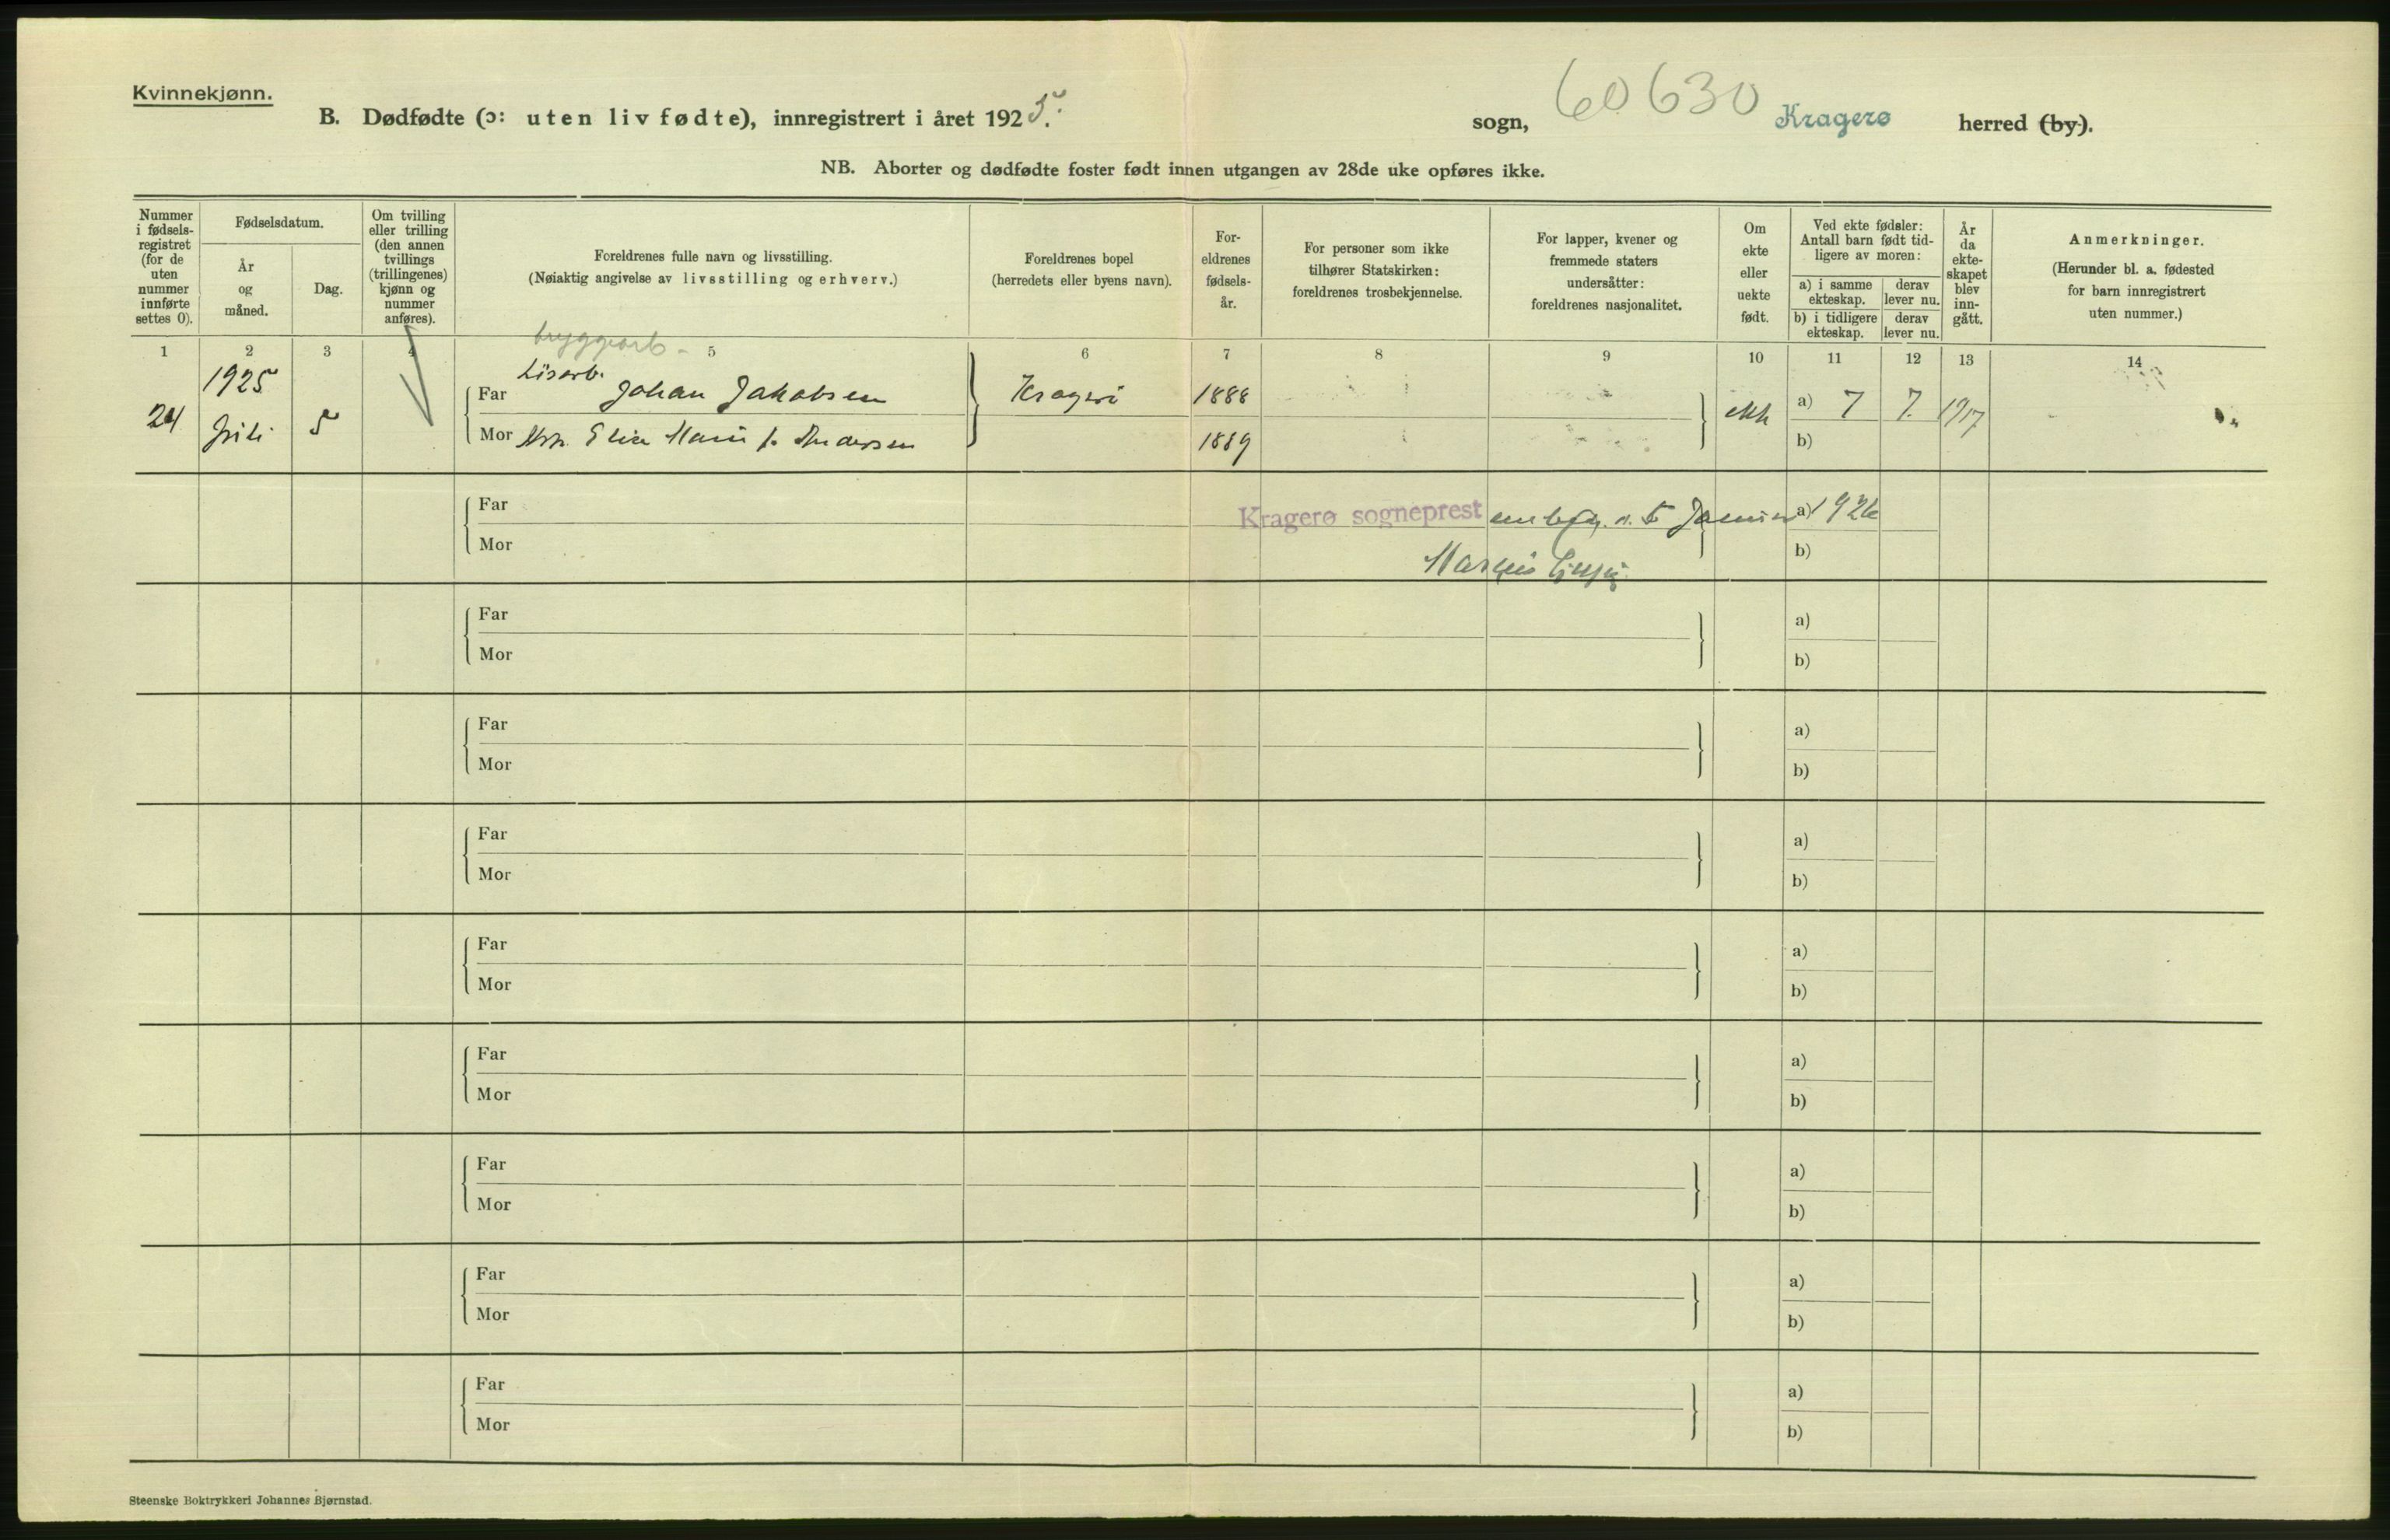 Kvinnekjønn.
B. Dødfødte (ɔ: uten liv fødte), innregistrert i året 1925.
sogn, 60630 Kragerø herred (by).
NB. Aborter og dødfødte foster født innen utgangen av 28de uke opføres ikke.
Nummer i fødsels-registret (for de uten nummer innførte settes 0).
Fødselsdatum.
År og måned.
Dag.
Om tvilling eller trilling (den annen tvillings (trillingenes) kjønn og nummer anføres).
Foreldrenes fulle navn og livsstilling.
(Nøiaktig angivelse av livsstilling og erhverv.)
Foreldrenes bopel
(herredets eller byens navn).
For-eldrenes fødsels-år.
For personer som ikke tilhører Statskirken: foreldrenes trosbekjennelse.
For lapper, kvener og fremmede staters undersåtter: foreldrenes nasjonalitet.
Om ekte eller uekte født.
Ved ekte fødsler: Antall barn født tid-ligere av moren:
a) i samme ekteskap.
derav lever nu.
b) i tidligere ekteskap.
derav lever nu.
År da ekte-skapet blev inn-gått.
Anmerkninger.
(Herunder bl. a. fødested for barn innregistrert uten nummer.)
bryggearb-
1 2 3 4 5 6 7 8 9 10 11 12 13 14
1925
24 Juli 5
Far Johan Jakobsen Kragerø 1888 a) 7 7. 1917
Mor Elise Marie f. Andersen 1889 b)
Far Kragerø sogneprest 5 Januar a) 1926
Mor b)
Far a)
Mor b)
Far a)
Mor b)
Far a)
Mor b)
Far a)
Mor b)
Far a)
Mor b)
Far a)
Mor b)
Far a)
Mor b)
Far a)
Mor b)
Steenske Boktrykkeri Johannes Bjørnstad.